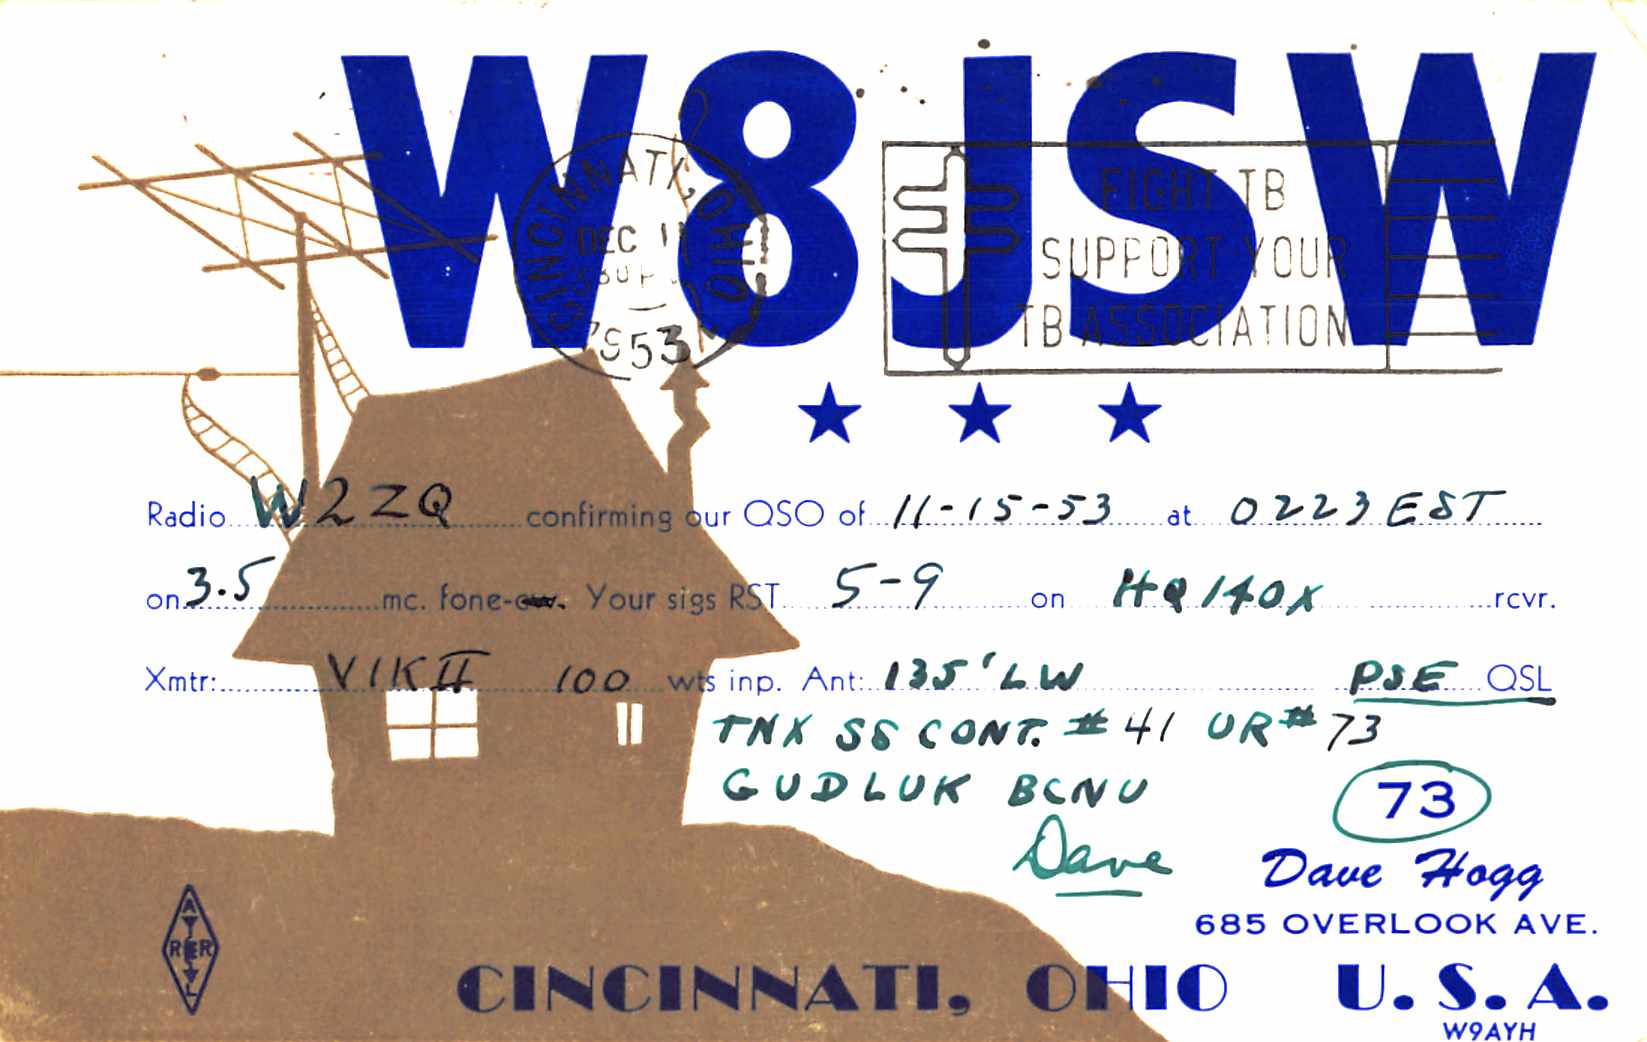 W8JSW
CINCINNATI, OHIO
DEC 11
1953
FIGHT TB
SUPPORT YOUR
TB ASSOCIATION
Radio W2ZQ confirming our QSO of 11-15-53 at 0223 EST
on 3.5 mc. fone-cw. Your sigs RST 5-9 on HQ140X rcvr.
Xmtr: VIK II 100 wts inp. Ant: 135' LW PSE QSL
TNX SS CONT. #41 UR #73
GUDLUK BCNU
73
Dave
Dave Hogg
685 OVERLOOK AVE.
A
R R
L
CINCINNATI, OHIO U. S. A.
W9AYH